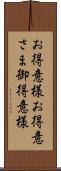 お得意様お得意
さま御得意様